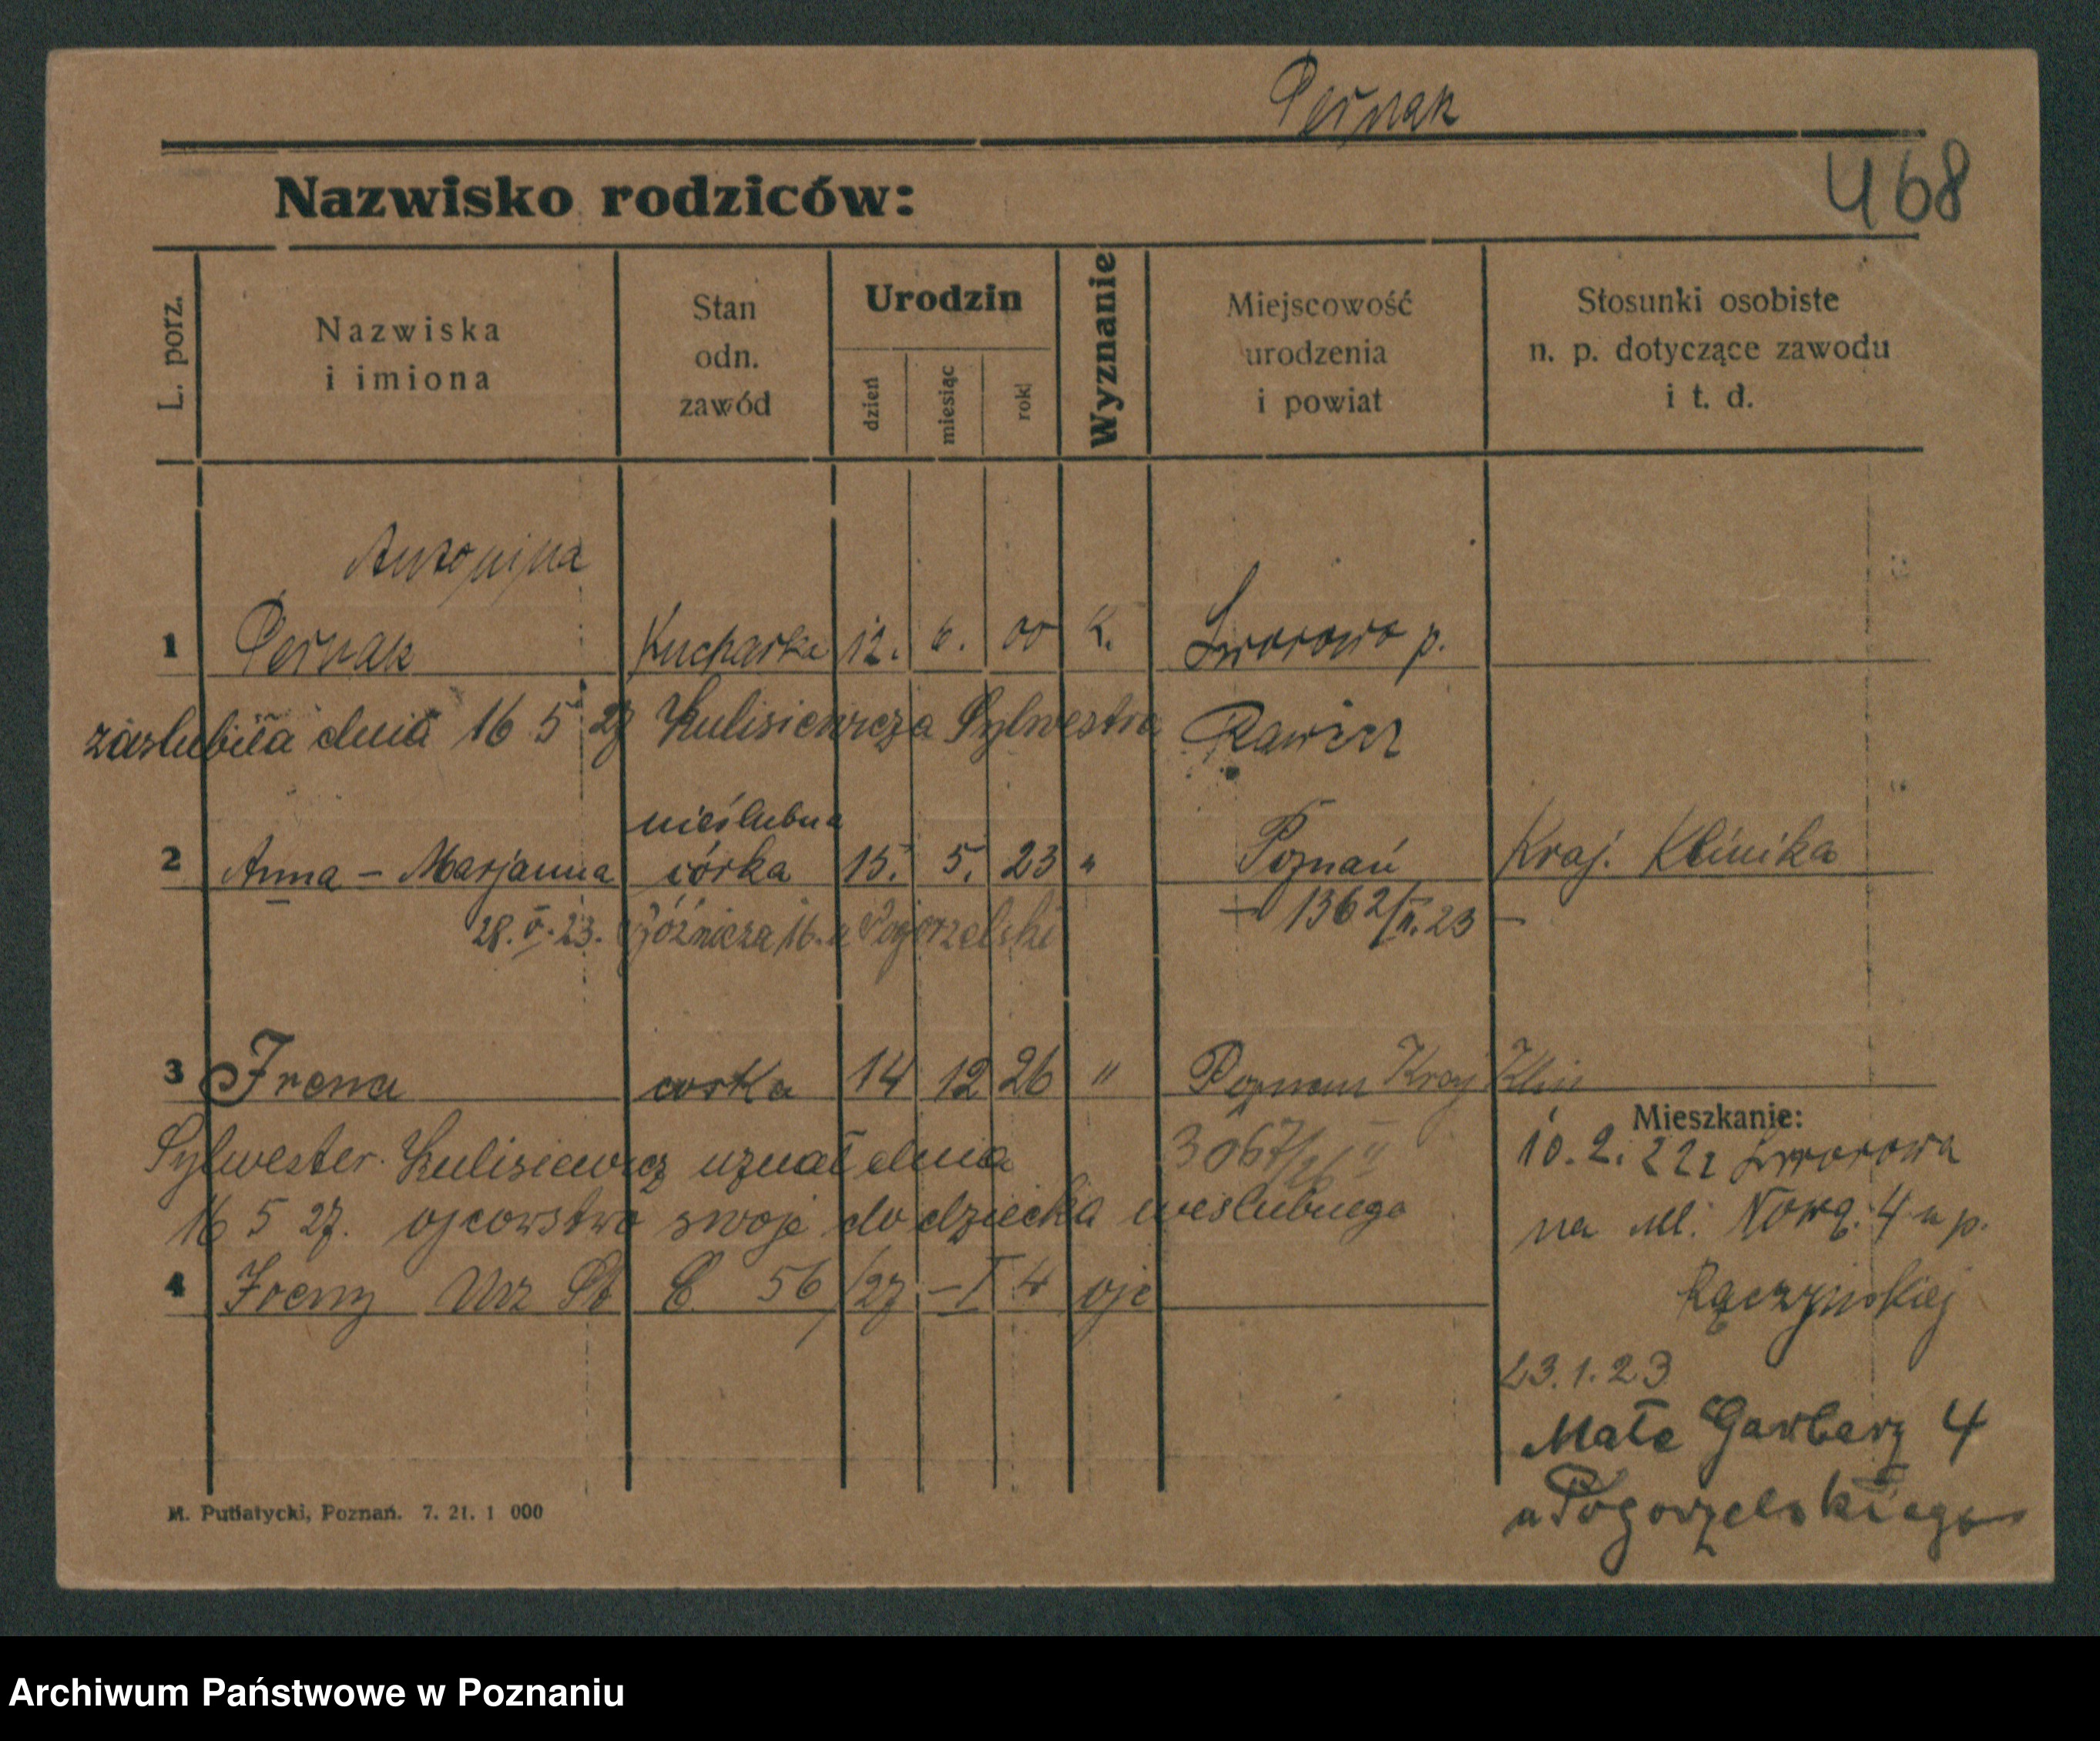 Pernak
468
Nazwisko rodziców:
L. porz.
Nazwiska
i imiona
Stan
odn.
zawód
Urodzin
dzień
miesiąc
rok
Wyznanie
Miejscowość
urodzenia
i powiat
Stosunki osobiste
n. p. dotyczące zawodu
i t. d.
Antonina
1 Kucharka 12. 6. 00 K. p.
zaślubiła dnia 16 5 27 Kulisiewicza Sylwestra
Rawicz
nieślubna
2 Anna - Marjanna córka 15. 5. 23 " Poznań Kraj. Klinika
28. V. 23. Woźnicza 16. u Pogorzelski
- 1362/II. 23 -
3 Irena corka 14 12 26 " Poznan Kraj Klin
3067/26 II
Sylwester Kulisiewicz uznał dnia
16 5 27. ojcowstwo swoje do dziecka nieslubnego
4 Ireny Urz St C 56/27 - I 4 oje
Mieszkanie:
10. 2. 22 z
na ul. 4 u p.
Rączyńskiej
23. 1. 23
Małe Garbary 4
u Pogorzelskiego
M. Putiatycki, Poznań. 7. 21. 1 000
Archiwum Państwowe w Poznaniu